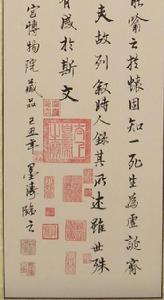 能喻之於懷固知一死生為虛誕齊
夫故列敘時人錄其所述雖世殊
有感於斯文
宮博物院藏品己丑年墨濤臨之